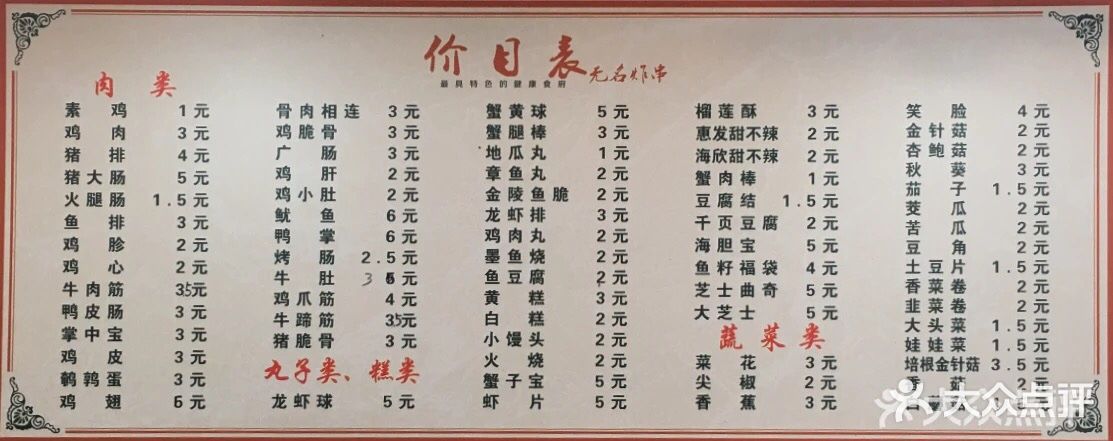 价目表 无名炸串
最具特色的健康食府
肉类
素鸡 1元
鸡肉 3元
猪排 4元
猪大肠 5元
火腿肠 1.5元
鱼排 3元
鸡胗 2元
鸡心 2元
牛肉筋 3.5元
鸭皮肠 3元
掌中宝 3元
鸡皮 3元
鹌鹑蛋 3元
鸡翅 6元
骨肉相连 3元
鸡脆骨 3元
广肠 3元
鸡肝 2元
鸡小肚 2元
鱿鱼 6元
鸭掌 6元
烤肠 2.5元
牛肚 元
鸡爪筋 4元
牛蹄筋 3.5元
猪脆骨 3元
丸子类、糕类
龙虾球 5元
蟹黄球 5元
蟹腿棒 3元
地瓜丸 1元
章鱼丸 2元
金陵鱼脆 2元
龙虾排 3元
鸡肉丸 2元
墨鱼烧 2元
鱼豆腐 2元
黄糕 3元
白糕 2元
小馒头 2元
火烧 2元
蟹子宝 5元
虾片 5元
榴莲酥 3元
惠发甜不辣 2元
海欣甜不辣 2元
蟹肉棒 1元
豆腐结 1.5元
千页豆腐 2元
海胆宝 5元
鱼籽福袋 4元
芝士曲奇 5元
大芝士 5元
蔬菜类
菜花 3元
尖椒 2元
香蕉 3元
笑脸 4元
金针菇 2元
杏鲍菇 2元
秋葵 3元
茄子 1.5元
茭瓜 2元
苦瓜 2元
豆角 2元
土豆片 1.5元
香菜卷 2元
韭菜卷 2元
大头菜 1.5元
娃娃菜 1.5元
培根金针菇 3.5元
香菇 2元
大众点评